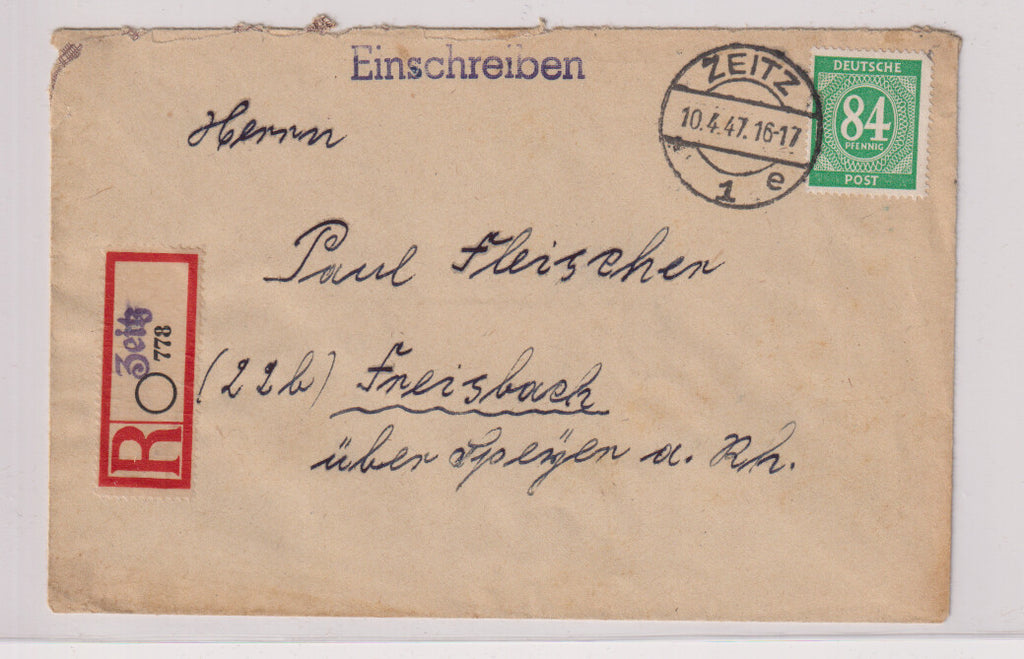 Einschreiben
ZEITZ
10.4.47.16-17
1 e
DEUTSCHE
84
PFENNIG
POST
Herrn
Paul Fleischer
(22b) Freisbach
über Speyer a. Rh.
R Zeitz
778